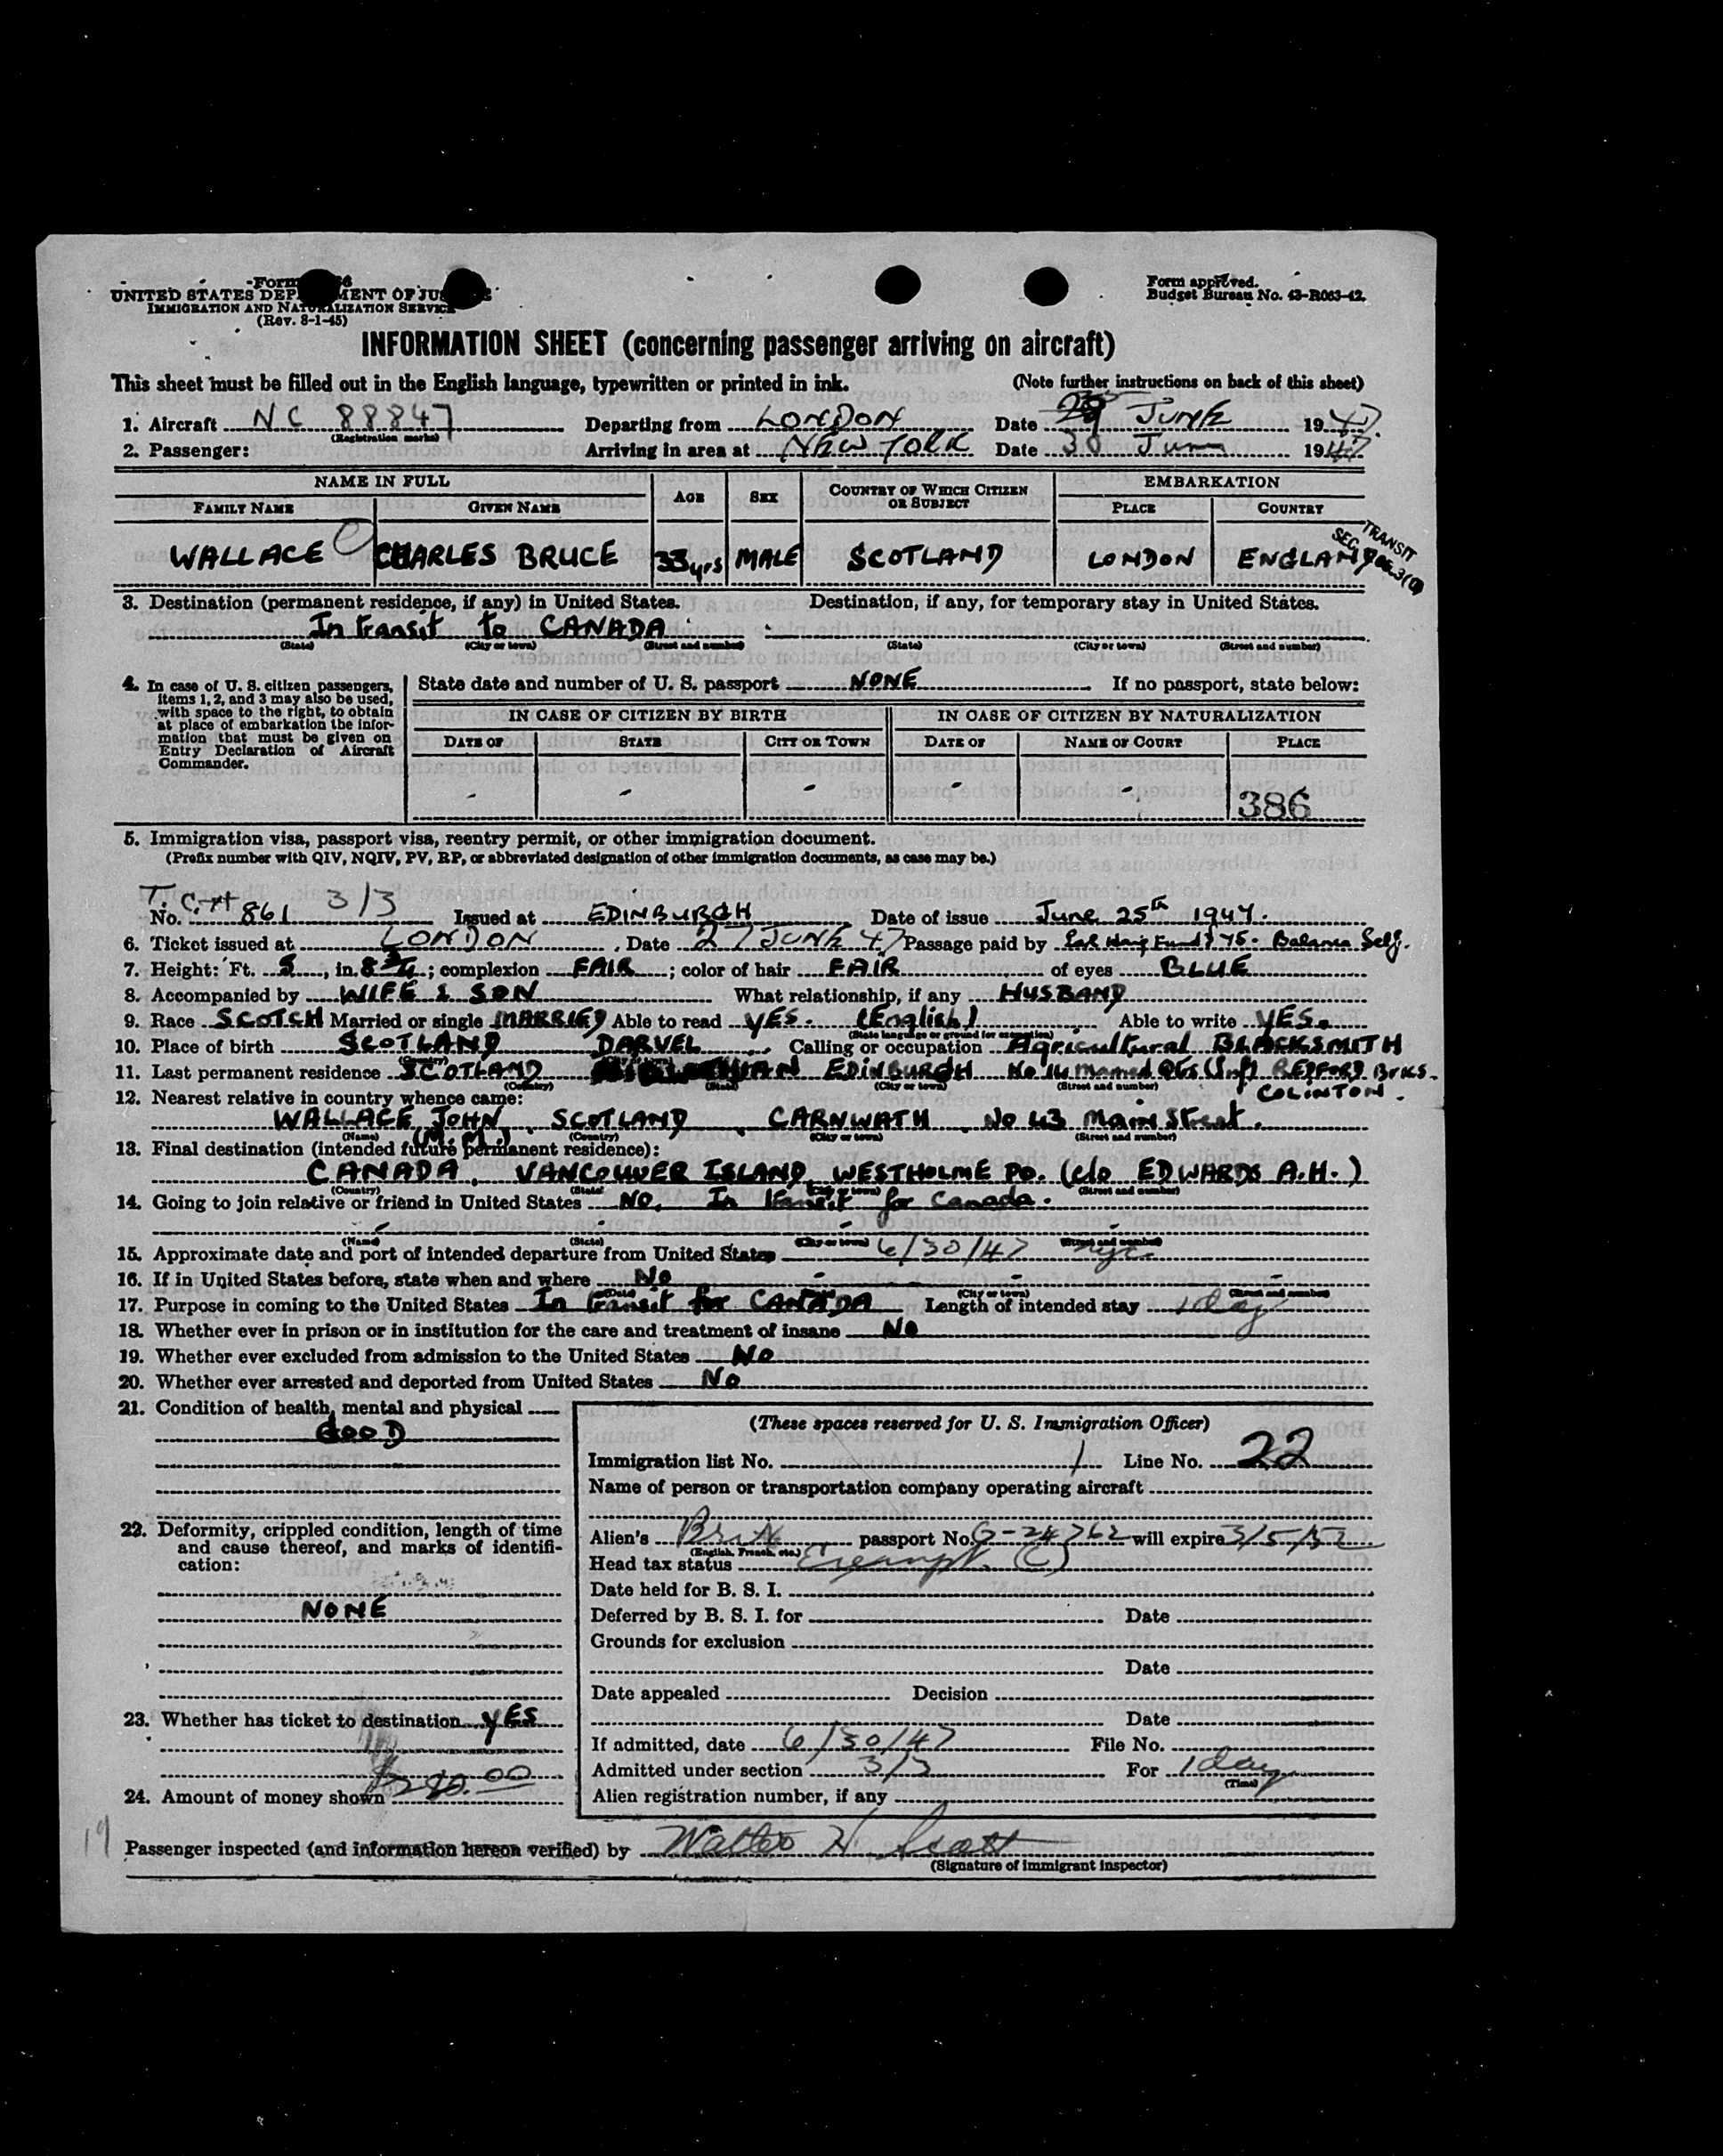 Form
UNITED STATES DEPARTMENT OF JUSTICE
IMMIGRATION AND NATURALIZATION SERVICE
(Rev. 8-1-45)
Form approved.
Budget Bureau No. 43-R063-42.
INFORMATION SHEET (concerning passenger arriving on aircraft)
This sheet must be filled out in the English language, typewritten or printed in ink. (Note further instructions on back of this sheet)
1. Aircraft NC 88847 Departing from LONDON Date 29 JUNE 1947
(Registration marks)
2. Passenger: Arriving in area at NEW YORK Date 30 June 1947
NAME IN FULL AGE SEX COUNTRY OF WHICH CITIZEN OR SUBJECT EMBARKATION
FAMILY NAME GIVEN NAME PLACE COUNTRY
TRANSIT
SEC.
WALLACE CHARLES BRUCE 33 yrs MALE SCOTLAND LONDON ENGLAND
3. Destination (permanent residence, if any) in United States. Destination, if any, for temporary stay in United States.
In transit to CANADA
(State) (City or town) (Street and number) (State) (City or town) (Street and number)
4. In case of U. S. citizen passengers, items 1, 2, and 3 may also be used, with space to the right, to obtain at place of embarkation the information that must be given on Entry Declaration of Aircraft Commander.
State date and number of U. S. passport NONE If no passport, state below:
IN CASE OF CITIZEN BY BIRTH IN CASE OF CITIZEN BY NATURALIZATION
DATE OF STATE CITY OR TOWN DATE OF NAME OF COURT PLACE
- - - - - 386
5. Immigration visa, passport visa, reentry permit, or other immigration document.
(Prefix number with QIV, NQIV, PV, RP, or abbreviated designation of other immigration documents, as case may be.)
T.C.# 3/3
No. 861 Issued at EDINBURGH Date of issue June 25th 1947.
6. Ticket issued at LONDON, Date 27 JUNE 47 Passage paid by Earl Haig Fund Balance Self.
7. Height: Ft. 5, in. 8 3/4; complexion FAIR; color of hair FAIR of eyes BLUE
8. Accompanied by WIFE & SON What relationship, if any HUSBAND
9. Race SCOTCH Married or single MARRIED Able to read YES. (English) Able to write YES.
(State language or ground for exemption)
10. Place of birth SCOTLAND DARVEL Calling or occupation Agricultural BLACKSMITH
(Country)
11. Last permanent residence SCOTLAND EDINBURGH No 14 Married Qts (Inf) REDFORD Brks.
(Country) (State) (City or town) (Street and number)
COLINTON.
12. Nearest relative in country whence came:
WALLACE JOHN SCOTLAND CARNWATH No 43 Main Street.
(Name) (Country) (City or town) (Street and number)
(M.M.)
13. Final destination (intended future permanent residence):
CANADA, VANCOUVER ISLAND, WESTHOLME PO. (c/o EDWARDS A.H.)
(Country) (State) (City or town) (Street and number)
14. Going to join relative or friend in United States NO. In transit for Canada.
- - - -
(Name) (State) (City or town) (Street and number)
15. Approximate date and port of intended departure from United States 6/30/47 nyc.
16. If in United States before, state when and where No - - -
(Date) (City or town) (Street and number)
17. Purpose in coming to the United States In transit for CANADA Length of intended stay 1 day
18. Whether ever in prison or in institution for the care and treatment of insane No
19. Whether ever excluded from admission to the United States No
20. Whether ever arrested and deported from United States No
21. Condition of health, mental and physical
GOOD
22. Deformity, crippled condition, length of time and cause thereof, and marks of identification:
NONE
23. Whether has ticket to destination YES
24. Amount of money shown
(These spaces reserved for U. S. Immigration Officer)
Immigration list No. 1 Line No. 22
Name of person or transportation company operating aircraft
Alien's Brit passport No. G-24762 will expire 3/5/52
(English, French, etc.)
Head tax status Exempt (C)
Date held for B. S. I.
Deferred by B. S. I. for Date
Grounds for exclusion
Date
Date appealed Decision
Date
If admitted, date 6/30/47 File No.
Admitted under section 3/3 For 1 day
(Time)
Alien registration number, if any
19
Passenger inspected (and information hereon verified) by Walter H Scott
(Signature of immigrant inspector)